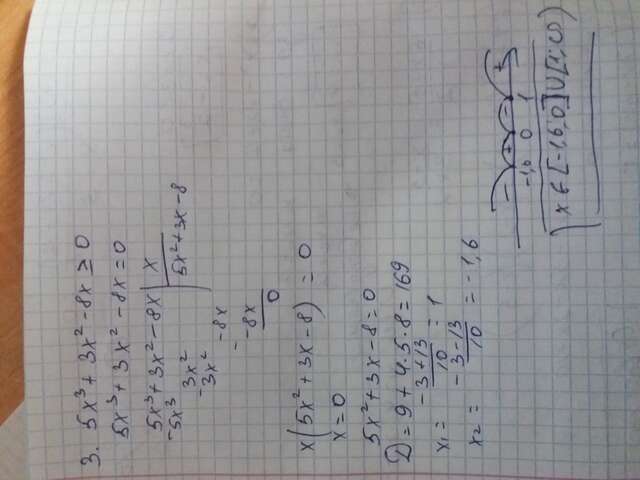 3. 5x³ + 3x² - 8x ≥ 0
5x³ + 3x² - 8x = 0
5x³ + 3x² - 8x | x
-5x³ | 5x² + 3x - 8
3x²
-3x²
-8x
-
-8x
0
x(5x² + 3x - 8) = 0
x = 0
5x² + 3x - 8 = 0
D = 9 + 4·5·8 = 169
x₁ = (-3+13)/10 = 1
x₂ = (-3-13)/10 = -1,6
- + - +
-1,6 0 1
x ∈ [-1,6;0] U [1;∞)